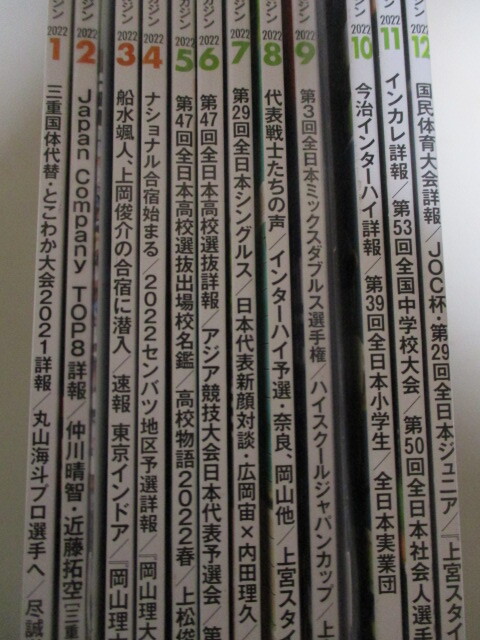 ジン 2022 1 三重国体代替・とこわか大会2021詳報/丸山海斗プロ選手へ 尽誠
ジン 2022 2 Japan Company TOP8詳報/仲川晴智・近藤拓空[三重
ジン 2022 3 船水颯人、上岡俊介の合宿に潜入/速報 東京インドア/『岡山理大
ジン 2022 4 ナショナル合宿始まる/2022センバツ地区予選詳報/『岡山理大
ジン 2022 5 第47回全日本高校選抜出場校名鑑/高校物語2022春/上松俊
ガジン 2022 6 第47回全日本高校選抜詳報/アジア競技大会日本代表予選会 第
ガジン 2022 7 第29回全日本シングルス/日本代表新顔対談・広岡宙×内田理久/
ガジン 2022 8 代表戦士たちの声/インターハイ予選・奈良、岡山他/上宮スタ
ガジン 2022 9 第3回全日本ミックスダブルス選手権 ハイスクールジャパンカップ/上
ジン 2022 10 今治インターハイ詳報/第39回全日本小学生/全日本実業団
ジン 2022 11 インカレ詳報/第53回全国中学校大会 第50回全日本社会人選手
ジン 2022 12 国民体育大会詳報/JOC杯・第29回全日本ジュニア/『上宮スタイ